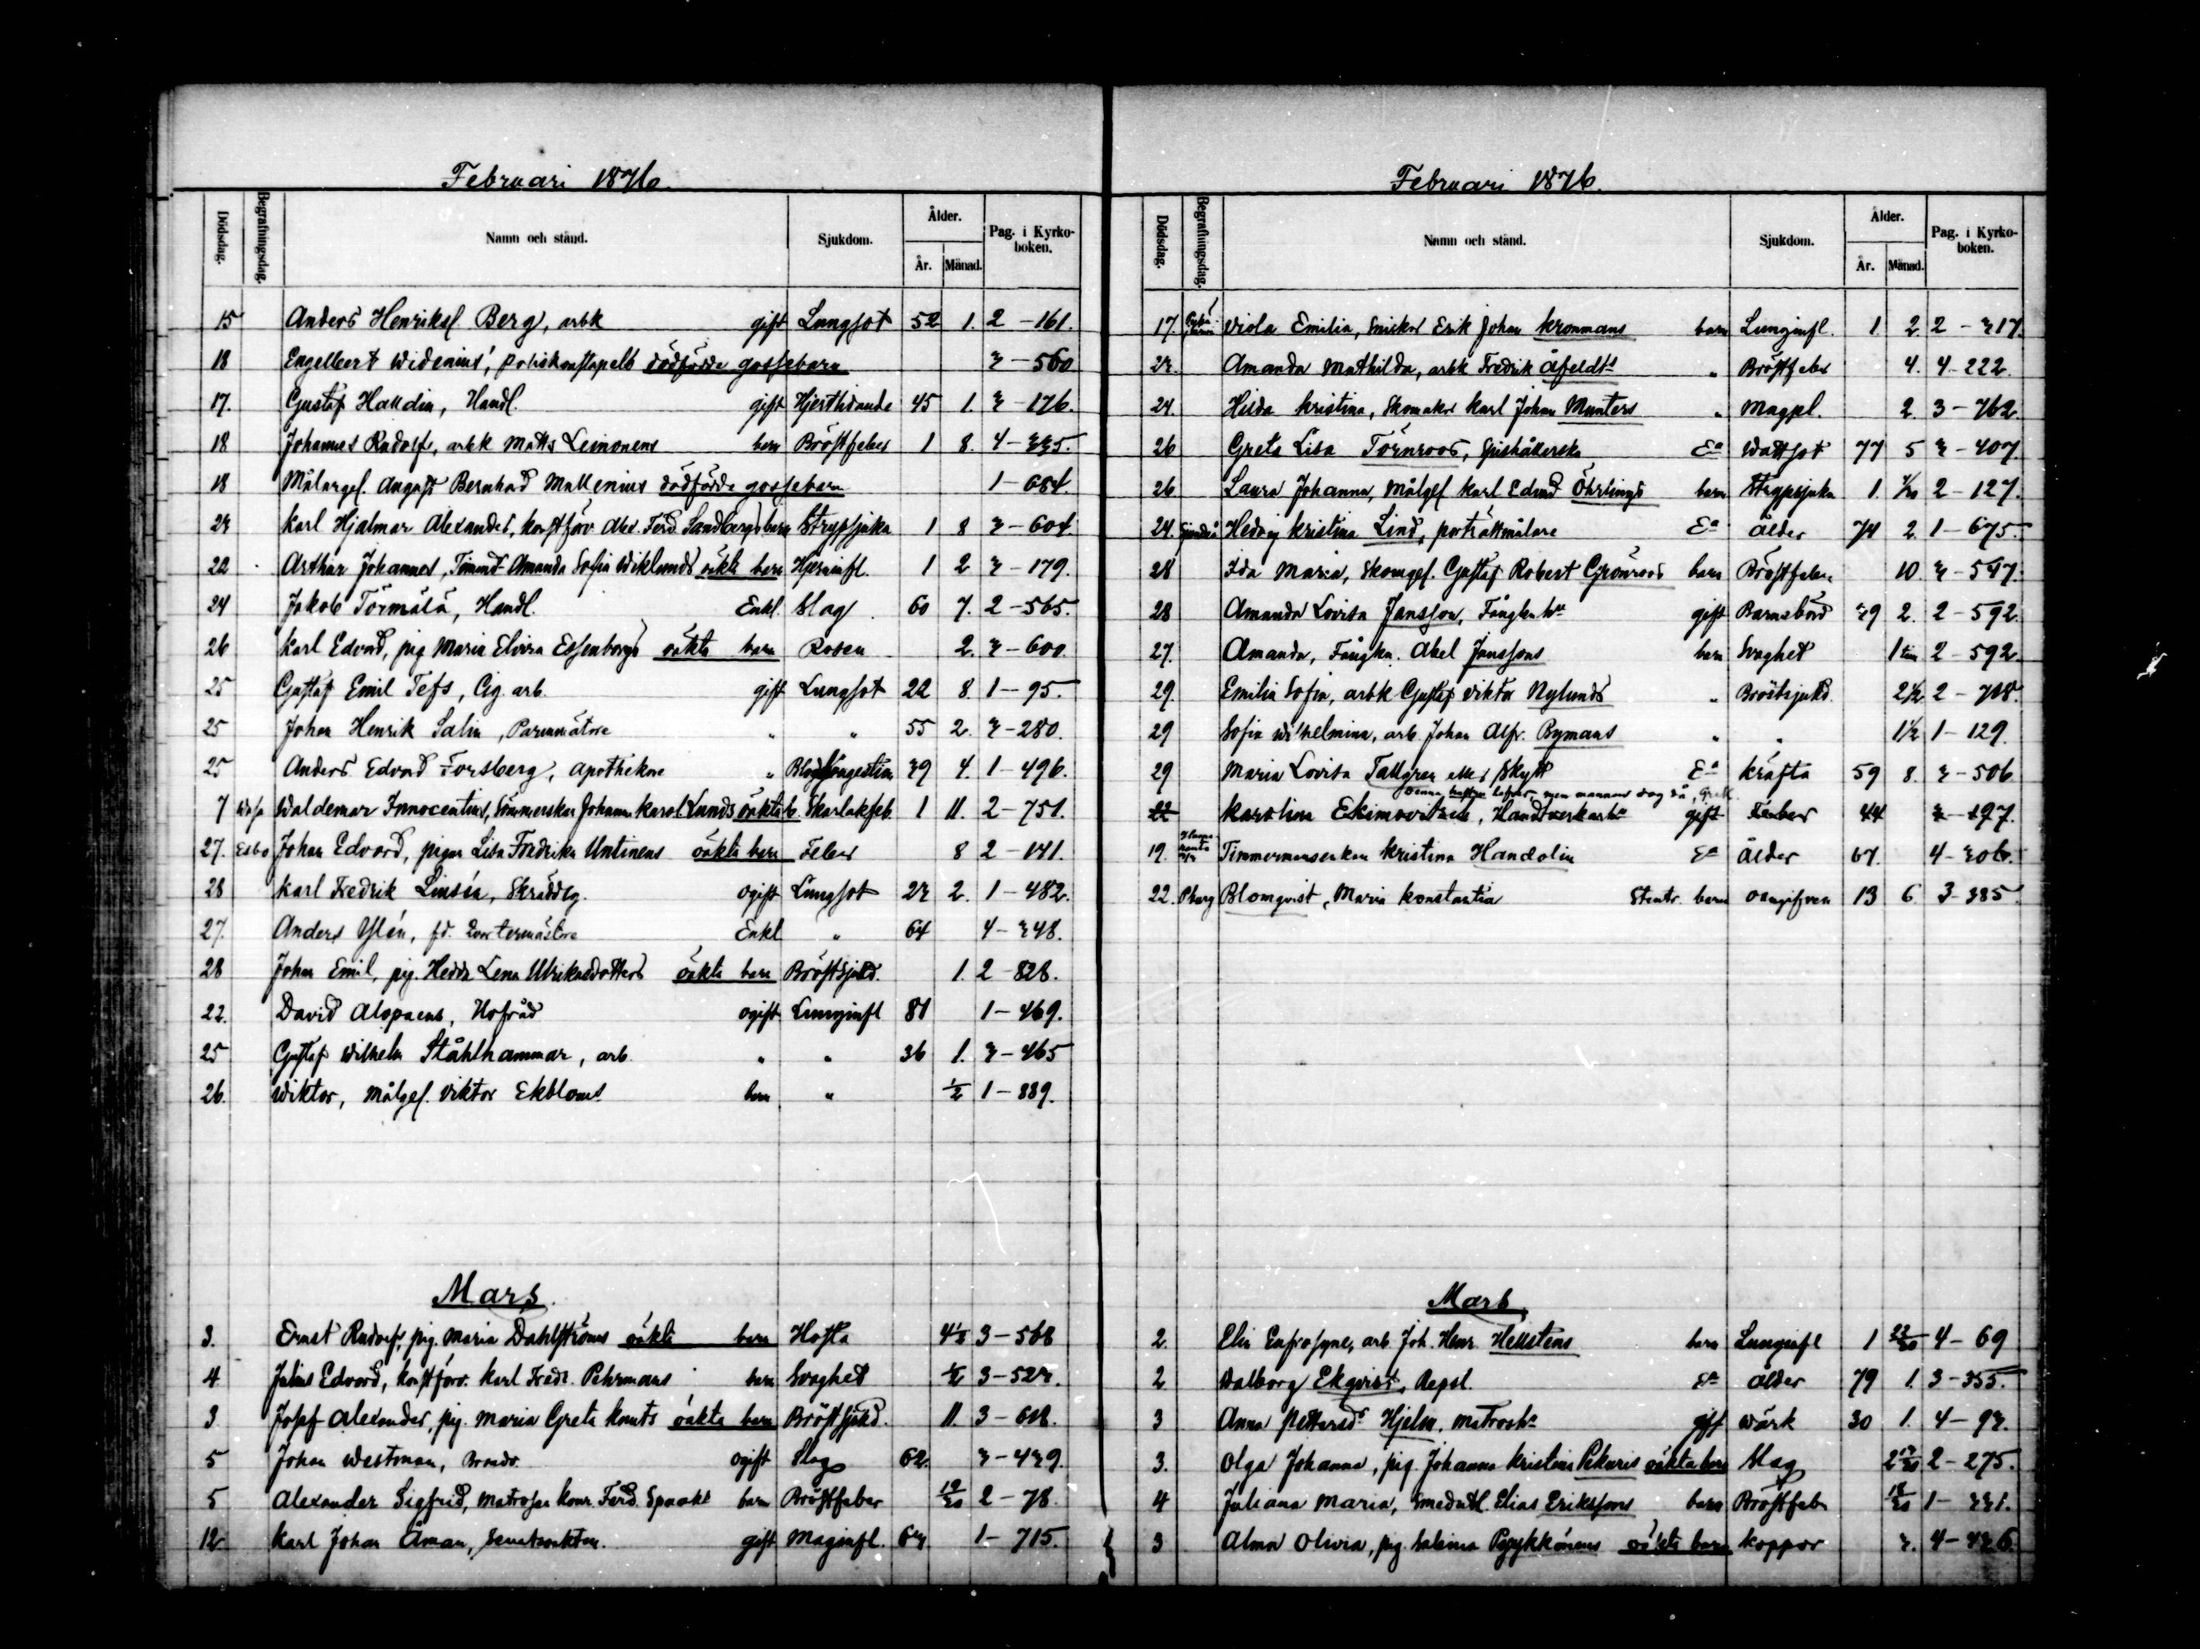 Februari 1876.
Dödsdag. Begrafningsdag. Namn och stånd. Sjukdom. Ålder. År. Månad. Pag. i Kyrkoboken.
15 Anders Henriksf. Berg, arbk gift Lungsot 52 1. 2-161.
18 Engelbert Widenius', poliskonstapels dödfödde gossebarn 3-560
17. Gustaf Halldin, Handl. gift Hjertlidande 45 1. 3-176.
18 Johannes Rudolf, arbk Matts Leinonens barn Bröstfeber 1 8. 4-335.
18 Målargef. August Bernhard Mallenius dödfödde gossebarn 1-684.
23 Karl Hjalmar Alexander, konstförv. Alex. Ferd. Sandbergs barn Strypsjuka 1 8 3-604.
22 Arthur Johannes, Amanda Sofia Wiklunds oäkta barn Hjerninfl. 1 2 3-179.
24 Jakob Törmälä, Handl. Enkl. Slag 60 7. 2-565.
26 Karl Edvard, pig Maria Elvira Essenborgs oäkta barn Rosen 2. 3-600.
25 Gustaf Emil Tefs, Cig. arb. gift Lungsot 22 8. 1-95.
25 Johan Henrik Salin, " " 55 2. 3-280.
25 Anders Edvard Forsberg, apothekare " Blodkongestion 39 4. 1-496.
7 Wasa Waldemar Innocentius, Sömmerskan Johanna Karol. Lunds oäkta b. Skarlakfeb. 1 11. 2-751.
27. Esbo Johan Edvard, pigan Lisa Fredrika Untinens oäkta barn Feber 8 2-141.
28 Karl Fredrik Linsén, Skräddg. ogift Lungsot 23 2. 1-482.
27. Anders Ylén, fd. Enkl " 64 4-348.
28 Johan Emil, pig. Hedda Lena Ulriksdotters oäkta barn Bröstsjukd. 1. 2-828.
22. David Alopaeus, Hofråd ogift Lunginfl 81 1-469.
25 Gustaf Wilhelm Ståhlhammar, arb. " " 36 1. 3-465
26. Wiktor, Målgef. Viktor Ekbloms barn " 1/2 1-889.
Mars.
3. Ernst Rudolf, pig. Maria Dahlströms oäkta barn Hosta 4 1/2 3-568
4 Julius Edvard, konstförv. Karl Fredr. Pehrmans barn Svaghet 1/2 3-523.
3 Josef Alexander, pig. Maria Greta Knuts oäkta barn Bröstsjukd. 11. 3-618.
5 Johan Westman, ogift Slag 62. 3-439.
5 Alexander Sigfrid, Matrosen Konr. Ferd. Spaaks barn Bröstfeber 19/30 2-78.
12 Karl Johan Åman, gift Maginfl. 63 1-715.
Februari 1876.
Dödsdag. Begrafningsdag. Namn och stånd. Sjukdom. Ålder. År. Månad. Pag. i Kyrkoboken.
17. Viola Emilia, Snickar Erik Johan Kronmans barn Lunginfl. 1. 2 2-317.
23. Amanda Mathilda, arbk Fredrik Åfeldts " Bröstfeber 4. 4-222.
24 Hilda Kristina, Skomakar Karl Johan Munters " Magpl. 2. 3-762.
26 Greta Lisa Törnroos, Gishållerska Ea Wattsot 77 5 3-407.
26 Laura Johanna, Målgef Karl Edvard Öhrlings barn Strypsjuka 1. 2-127.
24. Sjundeå Hedvig Kristina Lind, porträttmålare Ea ålder 74 2. 1-675.
28 Ida Maria, Skomgef. Gustaf Robert Grönroos barn Bröstfeber 10. 3-547.
28 Amanda Lovisa Jansson, Fångkn. hu gift Barnsbörd 39 2. 2-592.
27. Amanda, Fångkn. Abel Janssons barn Svaghet 1 tim 2-592.
29. Emilia Sofia, arbk Gustaf Viktor Nylunds " Bröstsjukd. 2 1/2 2-718.
29 Sofia Wilhelmina, arb. Johan Alfr. Rymans " " 1 1/2 1-129.
29 Maria Lovisa Tallgren eller Skytt Ea kräfta 59 8. 3-506
22 Karolina Ekimovitsch, Handtverkarhu gift Feber 44 3-197.
19. Timmermansenkan Kristina Handolin Ea Ålder 67. 4-306.
22. Pburg Blomqvist, Maria Konstantia barn oangifven 13 6. 3-385.
Mars
2. Elin Eufrosyne, arb. Joh. Henr. Hellstens barn Lunginfl 1 22/30 4-69
2 Walborg Ekqvist, Repsl. Ea ålder 79 1. 3-355.
3 Anna Pettersd. Hjelm, Matroshu gift Wärk 30 1. 4-93.
3. Olga Johanna, pig. Johanna Kristina Pekuris oäkta barn Slag 2 17/30 2-275.
4 Juliana Maria, Elias Erikssons barn Bröstfeb 18/30 1-331.
3 Alma Olivia, pig. Sabina Pyykkönens oäkta barn koppor 3. 4-436.